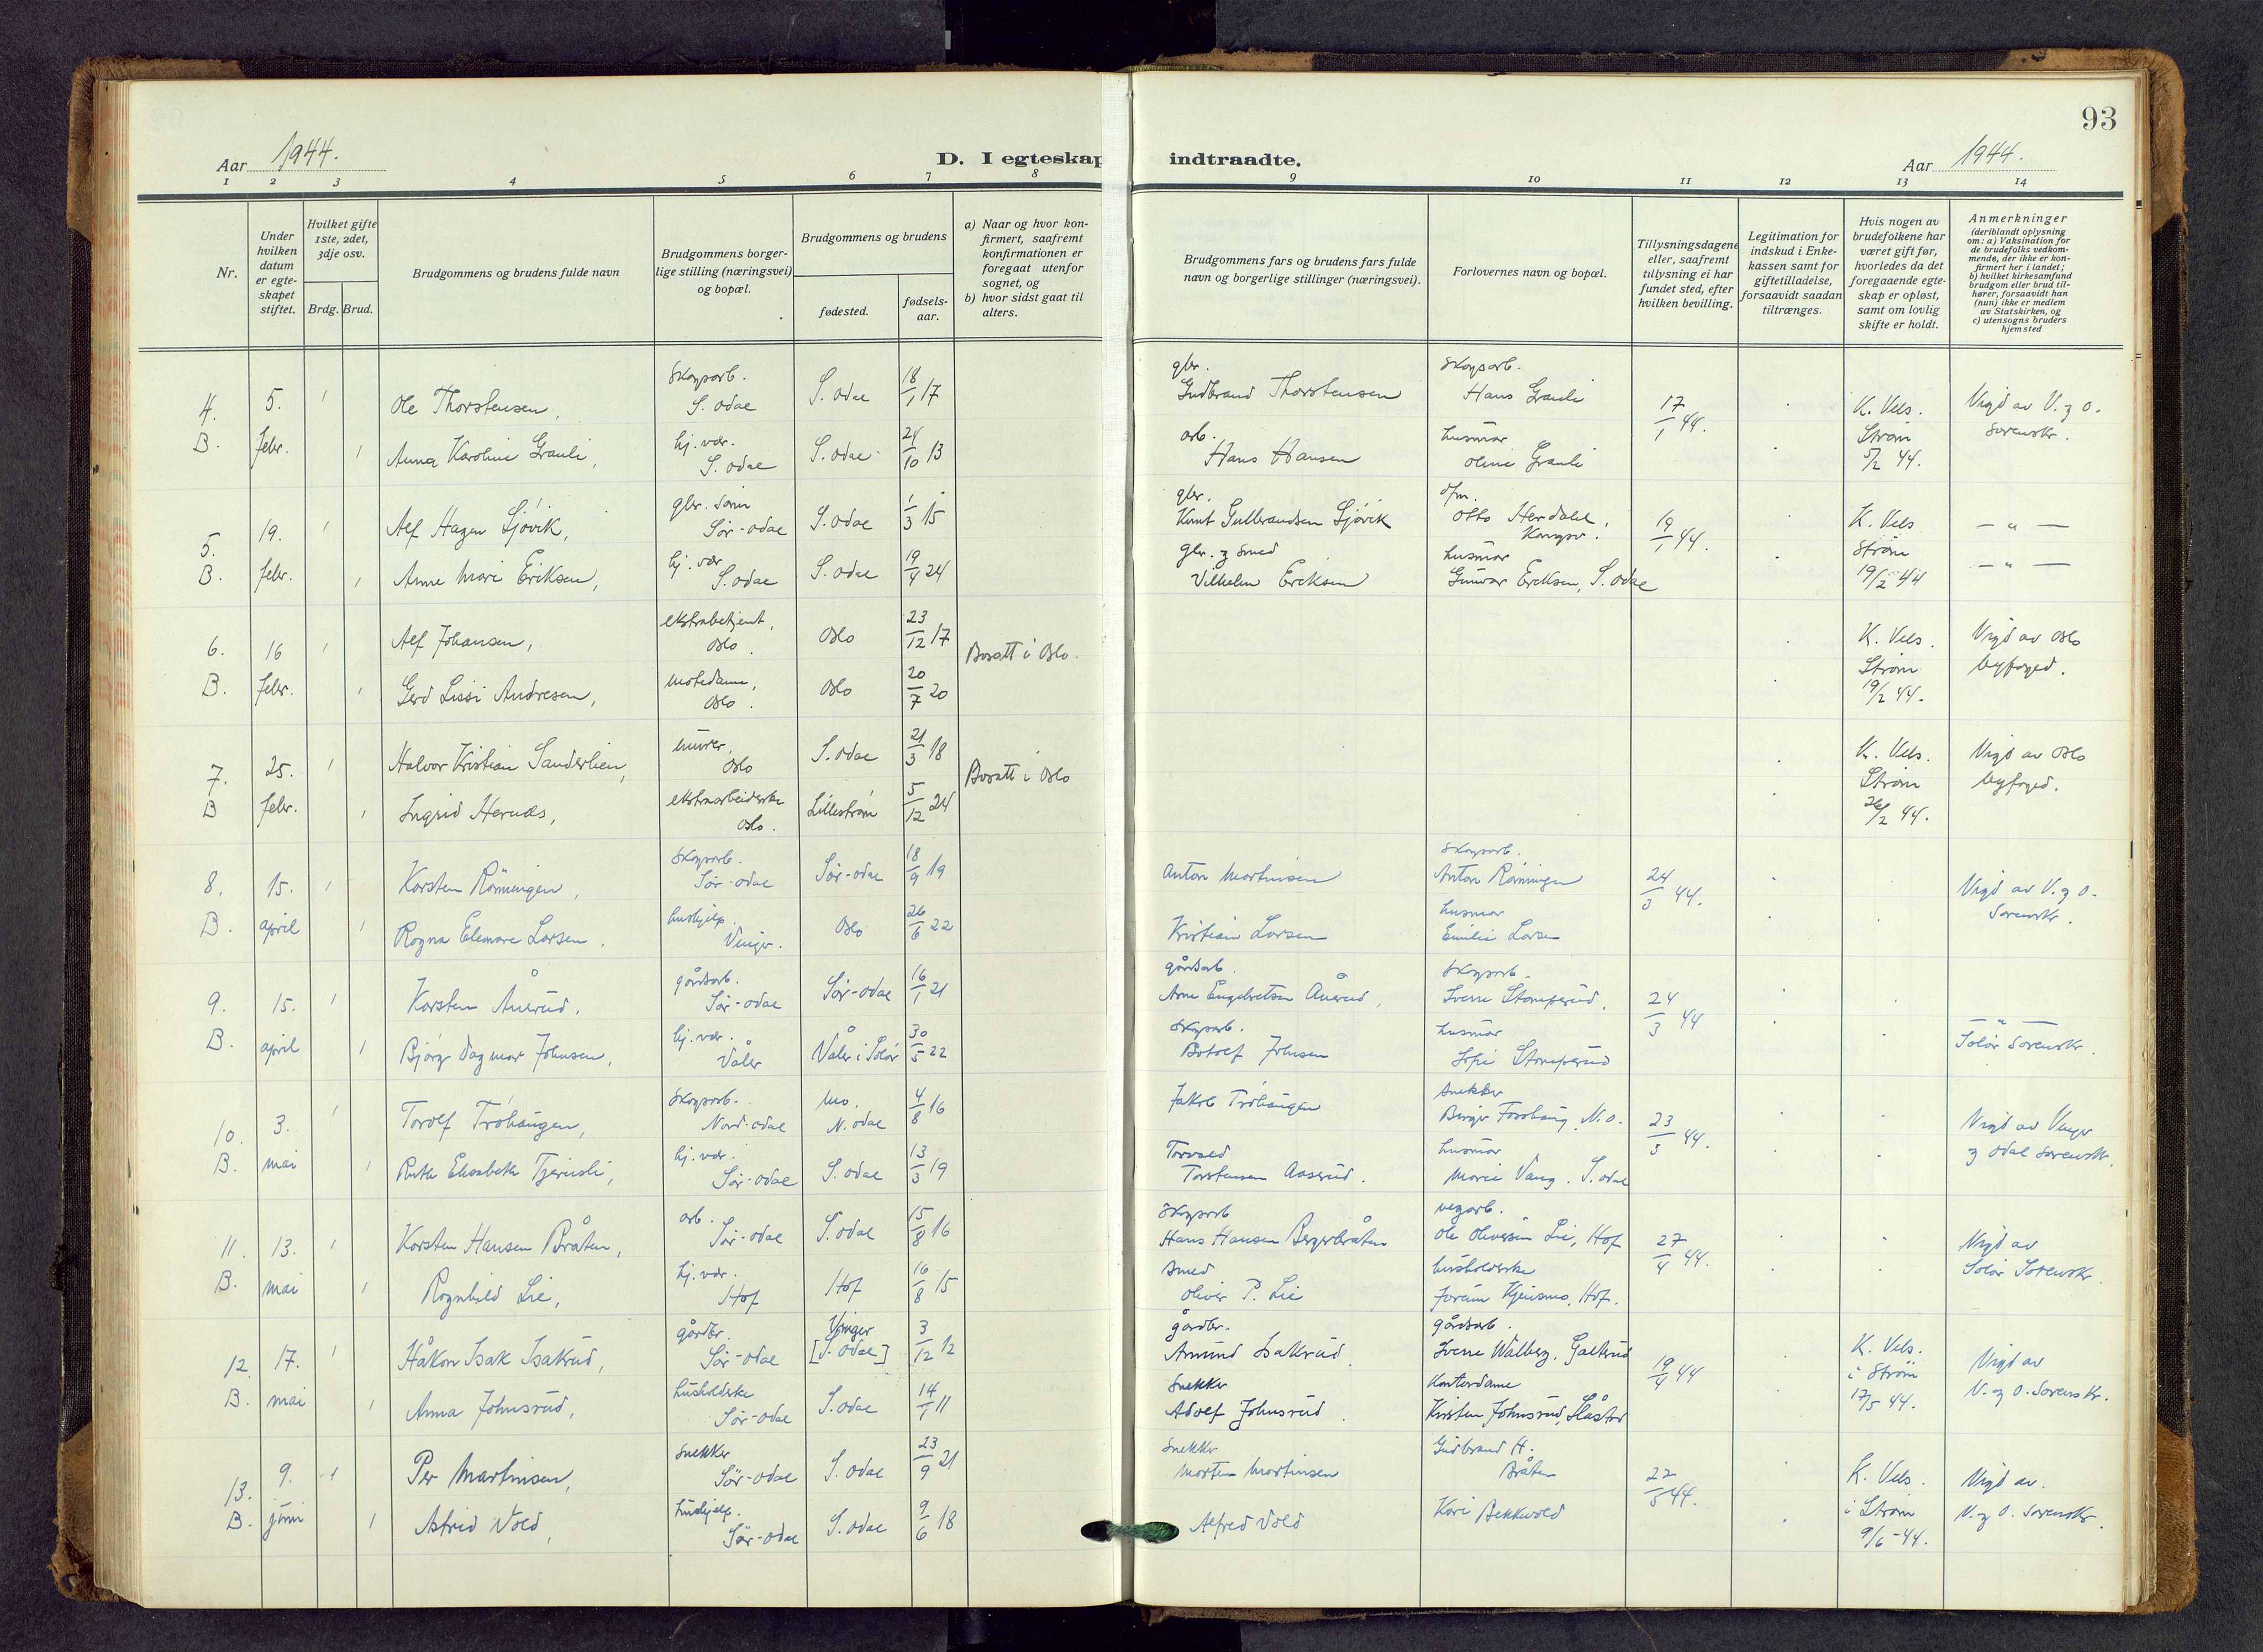 93
Aar 1944.
D. I egteskap indtraadte.
Aar 1944.
1 2 3 4 5 6 7 8 9 10 11 12 13 14
Nr.
Under hvilken datum er egteskapet stiftet.
Hvilket gifte 1ste, 2det, 3dje osv.
Brdg. Brud.
Brudgommens og brudens fulde navn
Brudgommens borgerlige stilling (næringsvei) og bopæl.
Brudgommens og brudens
fødested.
fødselsaar.
a) Naar og hvor konfirmert, saafremt konfirmationen er foregaat utenfor sognet, og
b) hvor sidst gaat til alters.
Brudgommens fars og brudens fars fulde navn og borgerlige stillinger (næringsvei).
Forlovernes navn og bopæl.
Tillysningsdagene eller, saafremt tillysning ei har fundet sted, efter hvilken bevilling.
Legitimation for indskud i Enkekassen samt for giftetilladelse, forsaavidt saadan tiltrænges.
Hvis nogen av brudefolkene har været gift før, hvorledes da det foregaaende egteskap er opløst, samt om lovlig skifte er holdt.
Anmerkninger
(deriblandt oplysning om: a) Vaksination for de brudefolks vedkommende, der ikke er konfirmert her i landet;
b) hvilket kirkesamfund brudgom eller brud tilhører, forsaavidt han (hun) ikke er medlem av Statskirken, og
c) utensogns bruders hjemsted
4. 5. 1 Ole Thorstensen, Skogsarb. S. Odal S. Odal 18/1 17 gbr. Gudbrand Thorstensen Skogsarb. Hans Grauli 17/1 44. K. Vels. Vigd av V. g O.
B. febr. 1 Anna Karoline Grauli, hj. vær. S. Odal S. Odal 24/10 13 arb. Hans Hansen husmor Oline Grauli Strøm 5/2 44. Sorenskr.
5. 19. 1 Alf Hagen Sjøvik, gbr. sønn Sør-Odal S. Odal 1/3 15 gbr. Knut Gulbrandsen Sjøvik Otto Herdahl, Kongsv. 19/1 44. K. Vels — " —
B. febr. 1 Anne Mari Eriksen, hj. vær S. Odal S. Odal 19/4 24 gbr. g smed Vilhelm Eriksen husmor Gunvor Eriksen, S. Odal Strøm 19/2 44 — " —
6. 16 1 Alf Johansen, ekstrabetjent, Oslo. Oslo 23/12 17 Bosatt i Oslo. K. Vels. Vigd av Oslo
B. febr. 1 Gerd Lissi Andresen, motedame, Oslo. Oslo 20/7 20 Strøm 19/2 44. byfoged.
7. 25. 1 Halvor Kristian Sanderlien, murer, Oslo S. Odal 21/3 18 Bosatt i Oslo K. Vels. Vigd av Oslo
B febr. 1 Ingrid Hernæs, ekstraarbeiderske Oslo. Lillestrøm 5/12 24 Strøm 26/2 44. byfoged.
8. 15. 1 Karsten Rønningen, Skogsarb. Sør-Odal Sør-Odal 18/9 19 Anton Martinsen Skogsarb. Anton Rønningen 24/3 44. Vigd av V. g O.
B. april 1 Ragna Eleonore Larsen. hushjelp. Vinger. Oslo 26/6 22 Kristian Larsen husmor Emilie Larsen Sorenskr.
9. 15. 1 Karsten Åuerud. gårdsarb. Sør-Odal Sør-Odal 16/1 21 gårdsarb. Arne Engebretsen Åuerud, Skogsarb. Sverre Stomperud. 24/3 44 — " —
B. april 1 Bjørg Dagmar Johnsen, hj. vær. Våler Våler i Solør 30/5 22 Skogsarb. Botolf Johnsen husmor Sofie Stomperud Solør Sorenskr.
10. 3. 1 Torolf Trøhaugen, Skogsarb. Nord-Odal Mo. N. Odal 4/8 16 Jakob Trøhaugen snekker Birger Fosshaug N.O. 23/3 44. Vigd av Vinger
B. mai 1 Ruth Elisabeth Tjernsli, hj. vær. Sør-Odal S. Odal 13/3 19 Torvald Torstensen Aaserud. husmor Marie Vang. S. Odal g Odal Sorenskr.
11. 13. 1 Karsten Hansen Bråten, arb. Sør-Odal S. Odal 15/8 16 Skogsarb Hans Hansen Bergerbråten vegarb. Ole Oliversen Lie, Hof 27/4 44. Vigd av
B. mai 1 Ragnhild Lie, hj. vær. Hof Hof 16/8 15 Smed Oliver P. Lie husholderske Jorunn Kjensmo, Hof. Solør Sorenskr.
12. 17. 1 Håkon Isak Isakrud, gårdbr. Sør-Odal Vinger [S. Odal] 3/12 12 gårdbr. Amund Isakrud. gårdsarb. Sverre Walberg. Galterud 19/4 44 K. Vels. i Strøm Vigd av
B. mai 1 Anna Johnsrud, husholderske Sør-Odal S. Odal 14/1 11 Snekker Adolf Johnsrud. Kontordame Kirsten Johnsrud, Slåstad 17/5 44. V. g O. Sorenskr.
13. 9. 1 Per Martinsen, Snekker Sør-Odal S. Odal 23/9 21 Snekker Morten Martinsen Gudbrand H. Bråten 22/5 44. K. Vels. Vigd av.
B. juni 1 Astrid Vold, hushjelp. Sør-Odal S. Odal 9/6 18 Alfred Vold Kari Bekkevold i Strøm 9/6-44. V. g O. Sorenskr.